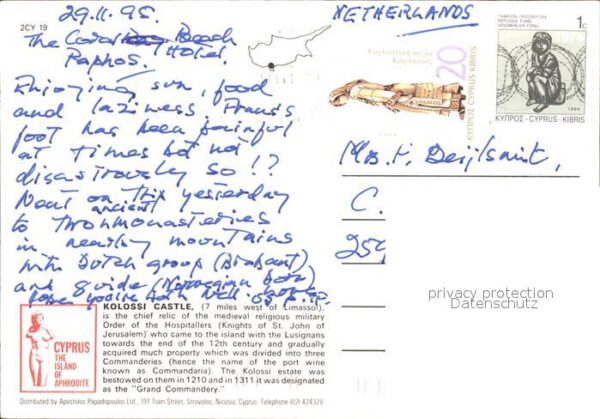 29.11.95.
NETHERLANDS
2CY 19
The Beach
Hotel
Paphos.
Enjoying sun, food
and laziness
foot has been painful
at times but not
disastrously so!?
Went on Trip yesterday
ancient
to two monasteries
in nearby mountains
with Dutch group (Brabant)
and guide (Norwegian
hope you're both well.
ΤΑΜΕΙΟΝ ΠΡΟΣΦΥΓΩΝ
REFUGEE FUND
GÖÇMENLER FONU
1c
1994
ΚΥΠΡΟΣ-CYPRUS-KIBRIS
20
ΚΥΠΡΟΣ CYPRUS KIBRIS
Mrs.
C.
privacy protection
Datenschutz
CYPRUS
THE
ISLAND
OF
APHRODITE
KOLOSSI CASTLE, (7 miles west of Limassol),
is the chief relic of the medieval religious military
Order of the Hospitallers (Knights of St. John of
Jerusalem) who came to the island with the Lusignans
towards the end of the 12th century and gradually
acquired much property which was divided into three
Commanderies (hence the name of the port wine
known as Commandaria). The Kolossi estate was
bestowed on them in 1210 and in 1311 it was designated
as the "Grand Commandery."
Distributed by Apostolos Papadopoulos Ltd., 19T Tsen Street, Strovolos, Nicosia, Cyprus. Telephone (02) 424320